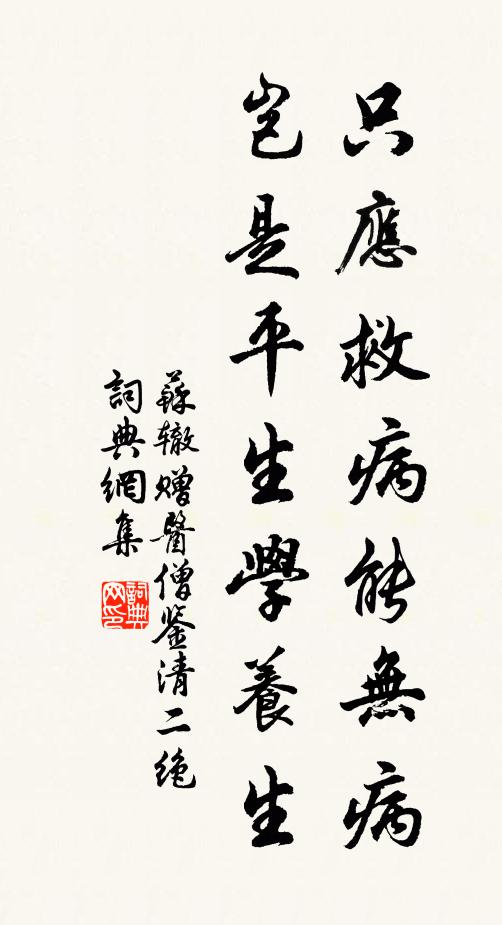 只應救病能無病
豈是平生學養生
蘇轍贈醫僧鉴清二绝
詞典網集
詞典
网印